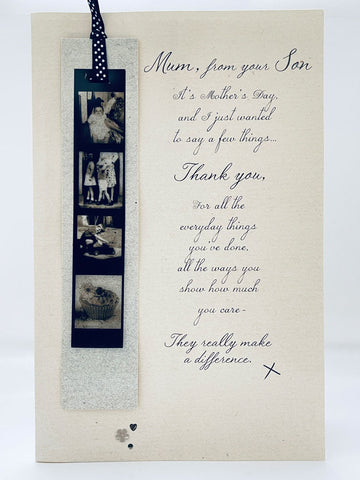 Mum, from your Son
It's Mother's Day,
and I just wanted
to say a few things...
Thank you,
For all the
everyday things
you've done,
all the ways you
show how much
you care-
They really make
a difference.
X